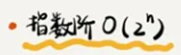 • 指数阶 O(2ⁿ)